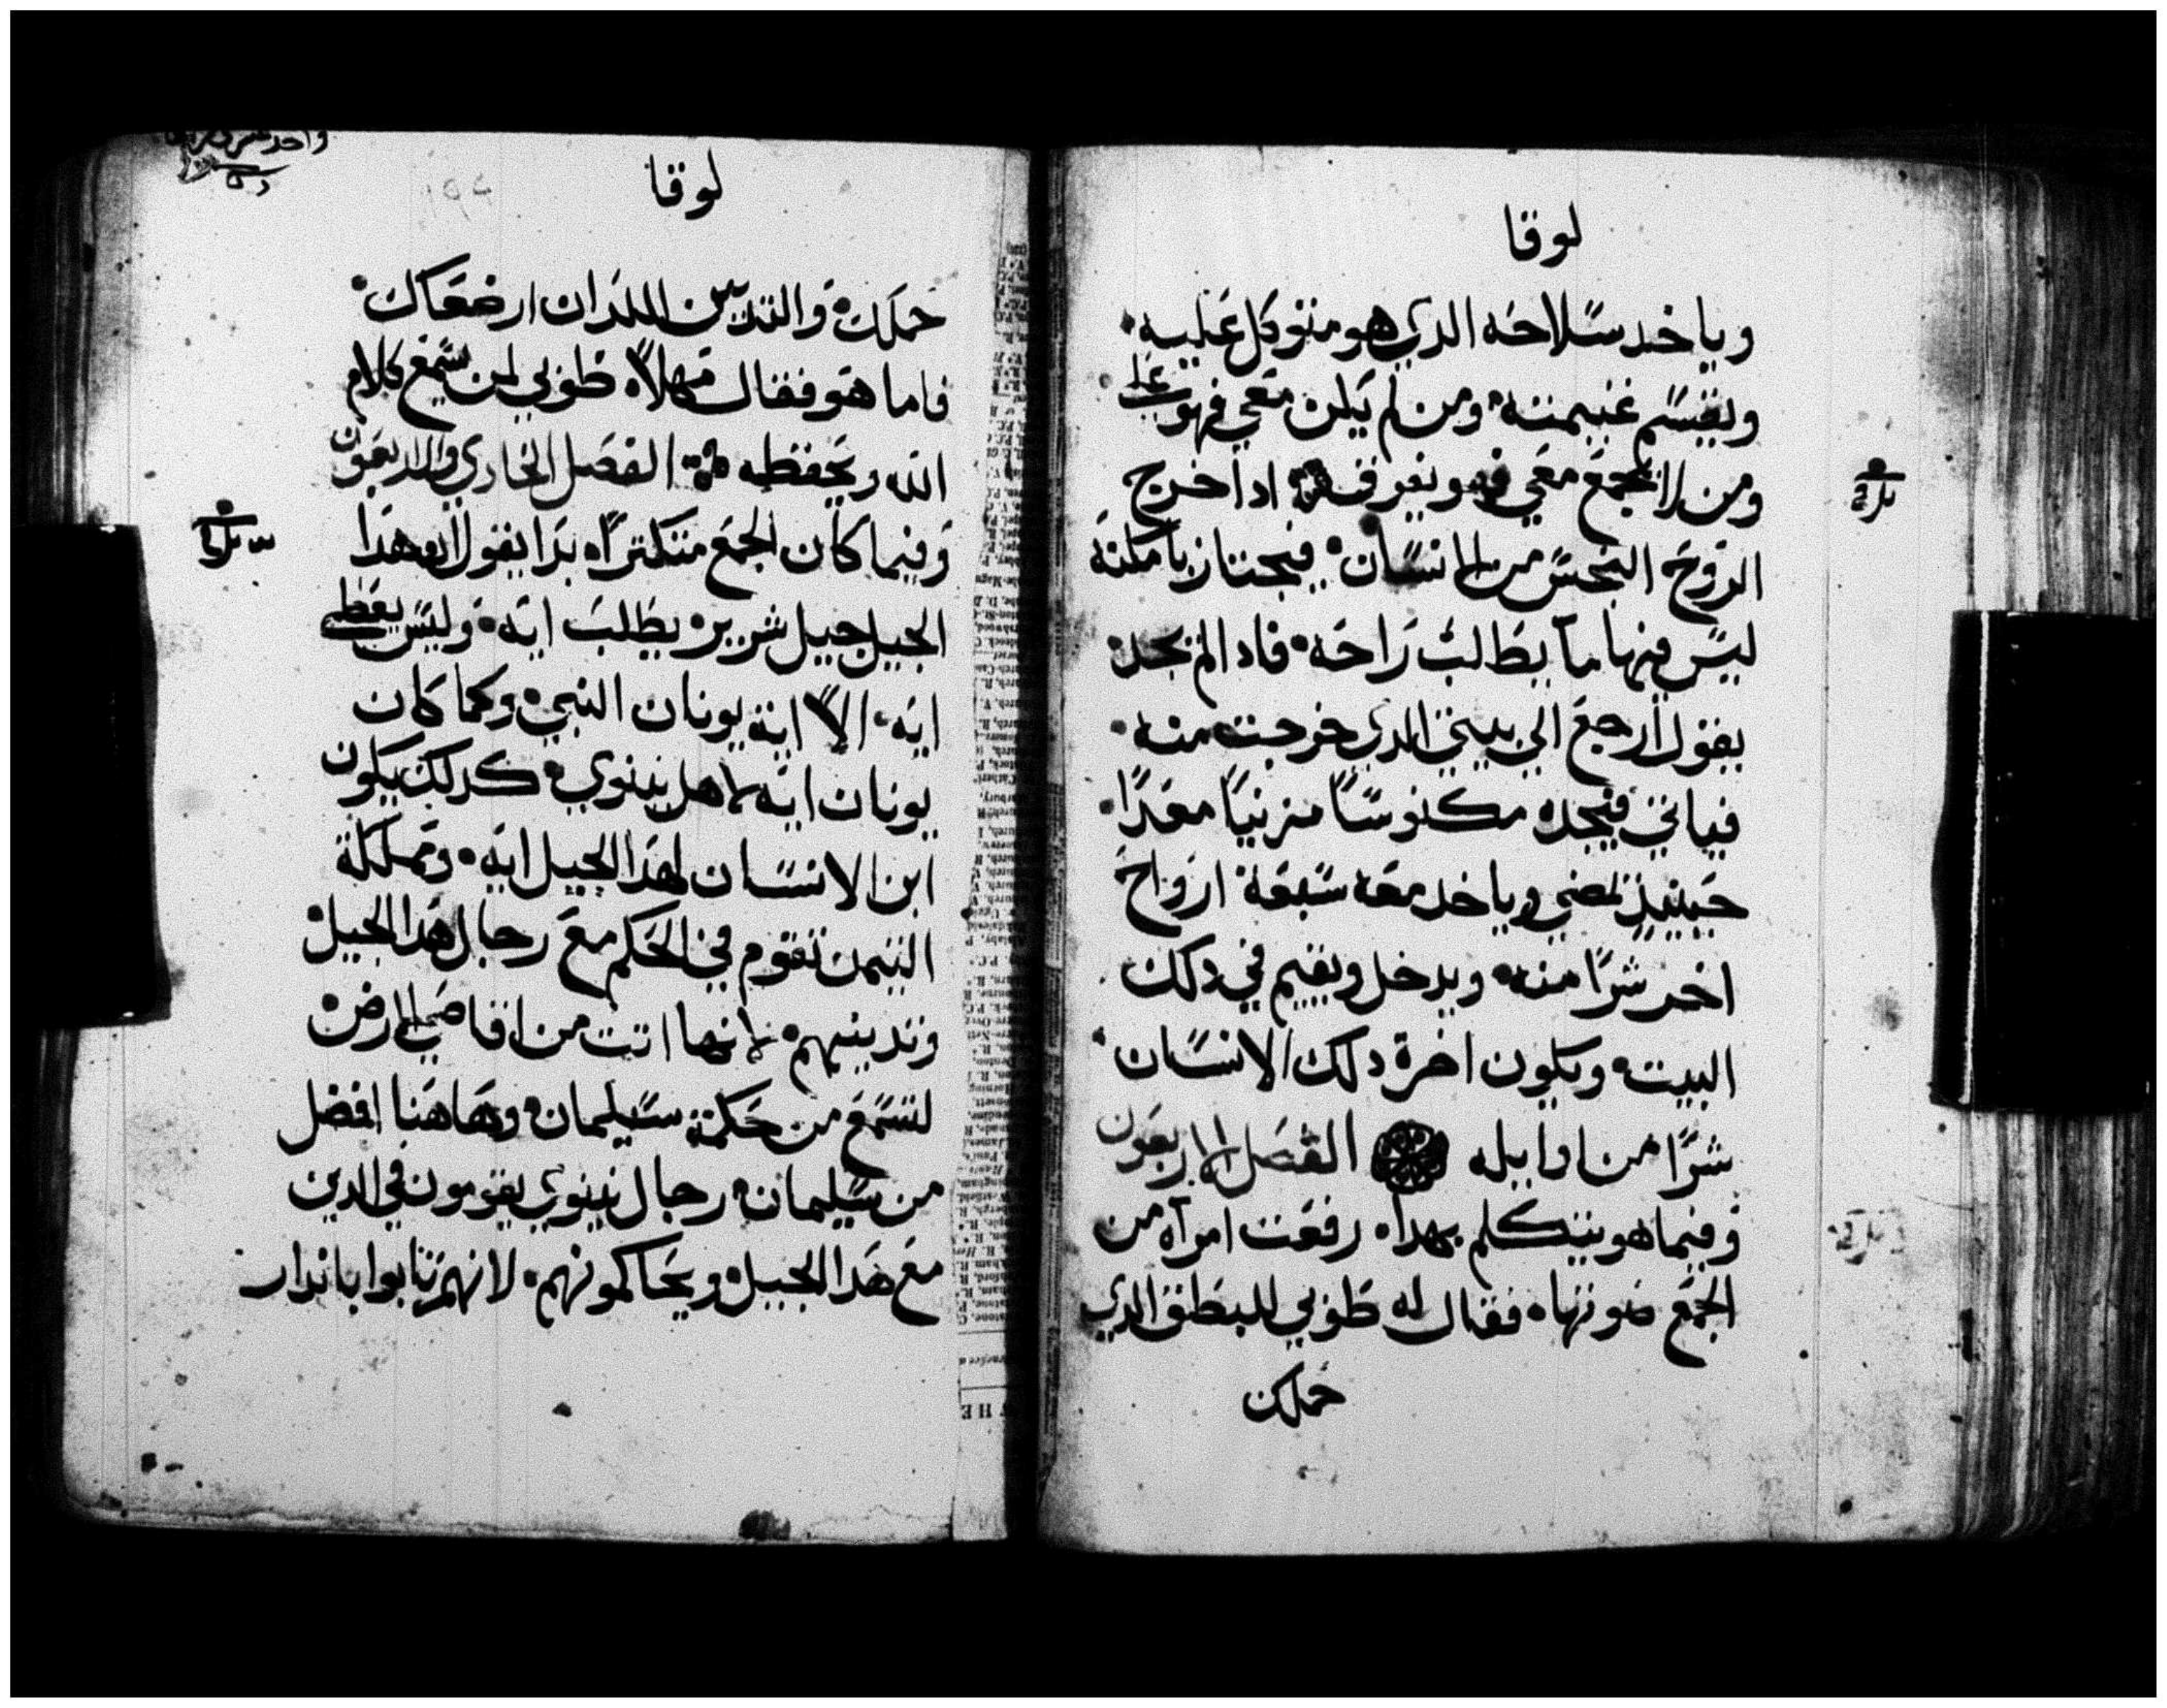 لوقا
وياخد سلاحه الدي هو متوكل عليه
ويقسم غنيمته ومن لم يكن معي فهو علي
ومن لا يجمع معي فهو يفرق ادا خرج
الروح النجس من الانسان فيجتاز بامكنة
ليس فيها ما يطلب راحه فادا لم يجد
يقول ارجع الي بيتي الدي خرجت منه
فياتي فيجده مكنوسًا مزينًا معدًا
حينيذ يمضي وياخد معه سبعة ارواح
اخر شرًا منه ويدخل ويقيم في دلك
البيت ويكون اخرة دلك الانسان
شرًا من اوايله الفصل الاربعون
وفيما هو يتكلم بهدا رفعت امراه من
الجمع صوتها فقال له طوبي للبطن الدي
حملك
لوقا
حملك والتديين اللدان ارضعاك
فاما هو فقال مهلاً طوبي لمن سمع كلام
الله ويحفظه الفصل الحادي والاربعون
وفيما كان الجمع متكترًا بدا يقول ان هدا
الجيل جيل شرير يطلب ايه وليس يعطي
ايه الا اية يونان النبي وكما كان
يونان ايه لاهل نينوي كدلك يكون
ابن الانسان لهدا الجيل ايه وتملكة
التيمن تقوم في الحكم مع رجال هدا الجيل
وتدينهم لانها اتت من اقاصي الارض
لتسمع من حكمة سليمان وهاهنا افضل
من سليمان رجال نينوي يقومون في الدين
مع هدا الجيل ويحاكمونهم لانهم تابوا باندار